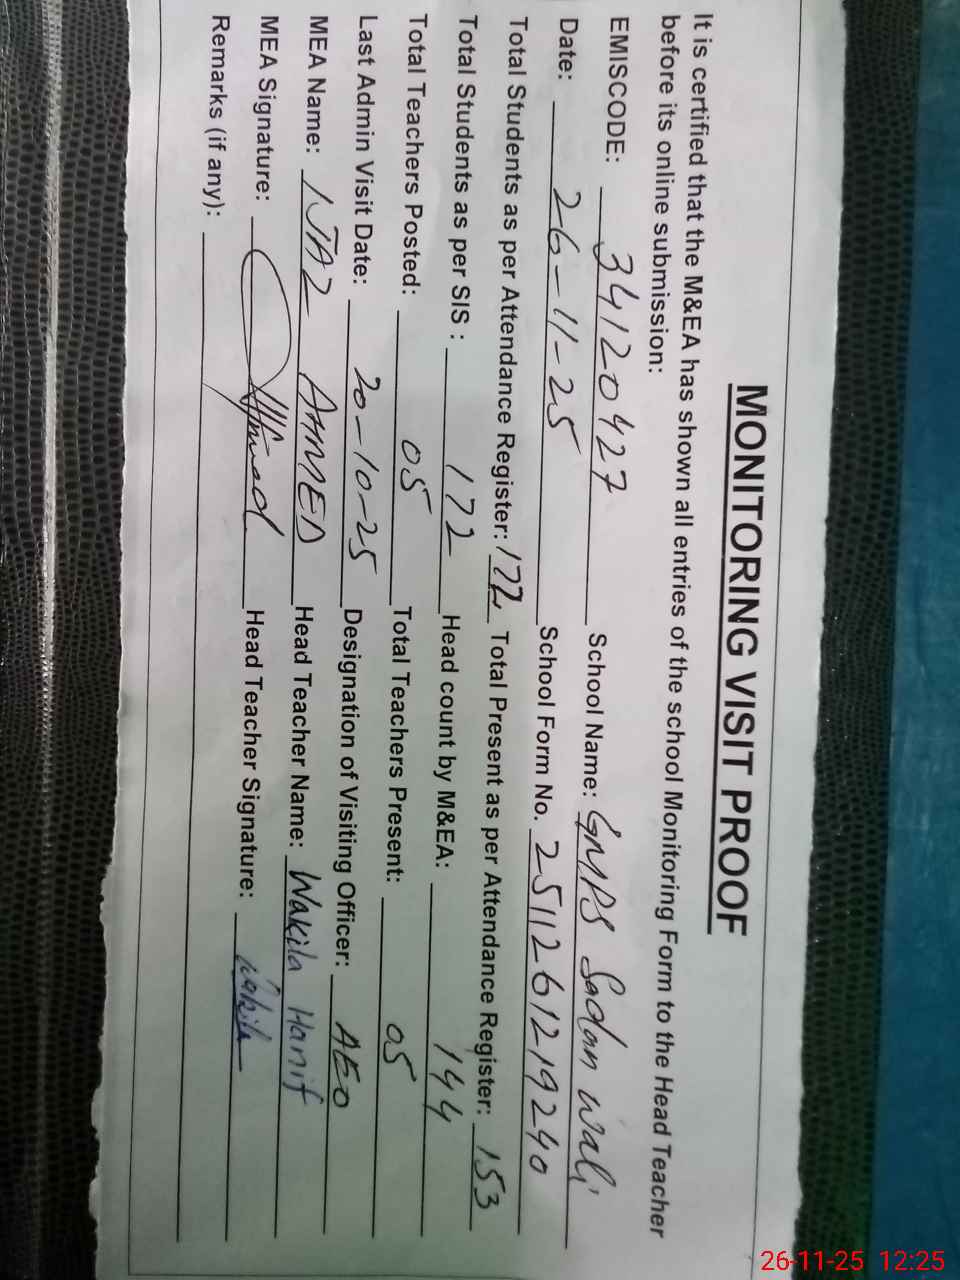 MONITORING VISIT PROOF
It is certified that the M&EA has shown all entries of the school Monitoring Form to the Head Teacher
before its online submission:
EMISCODE: 34120427 School Name: GMPS Sadan wali
Date: 26-11-25 School Form No. 2511261219240
Total Students as per Attendance Register: 172 Total Present as per Attendance Register: 153
Total Students as per SIS : 172 Head count by M&EA: 144
Total Teachers Posted: 05 Total Teachers Present: 05
Last Admin Visit Date: 20-10-25 Designation of Visiting Officer: AEO
MEA Name: IJAZ AHMED Head Teacher Name: Wakila Hanif
MEA Signature: Head Teacher Signature: Wakila
Remarks (if any):
26-11-25 12:25